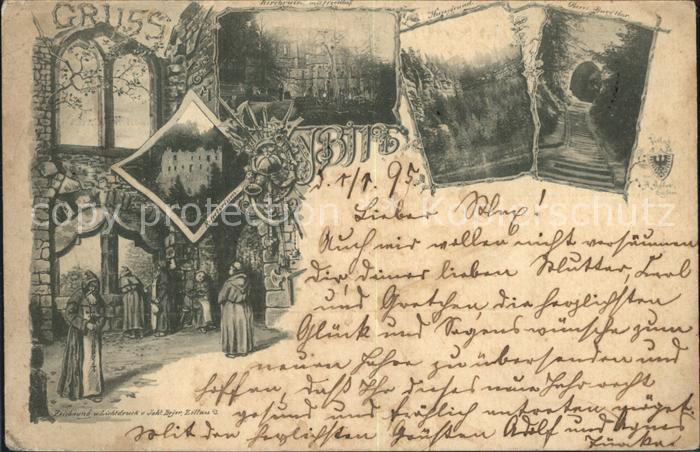 GRUSS
Kirchruine mit Friedhof
Hausgrund
OYBIN
D. 1/1. 95.
Lieber Max!
Auch wir wollen nicht versäumen
Dir, deiner lieben Mutter, Karl
und Gretchen die herzlichsten
Glück und Segenswünsche zum
neuen Jahre zu übersenden und
hoffen, daß Ihr dieses neue Jahr recht
gesund und fröhlich antreten möget.
Mit den herzlichsten Grüßen Adolf und Agnes
Zeichnung u. Lichtdruck v. Joh. Beyer, Zittau